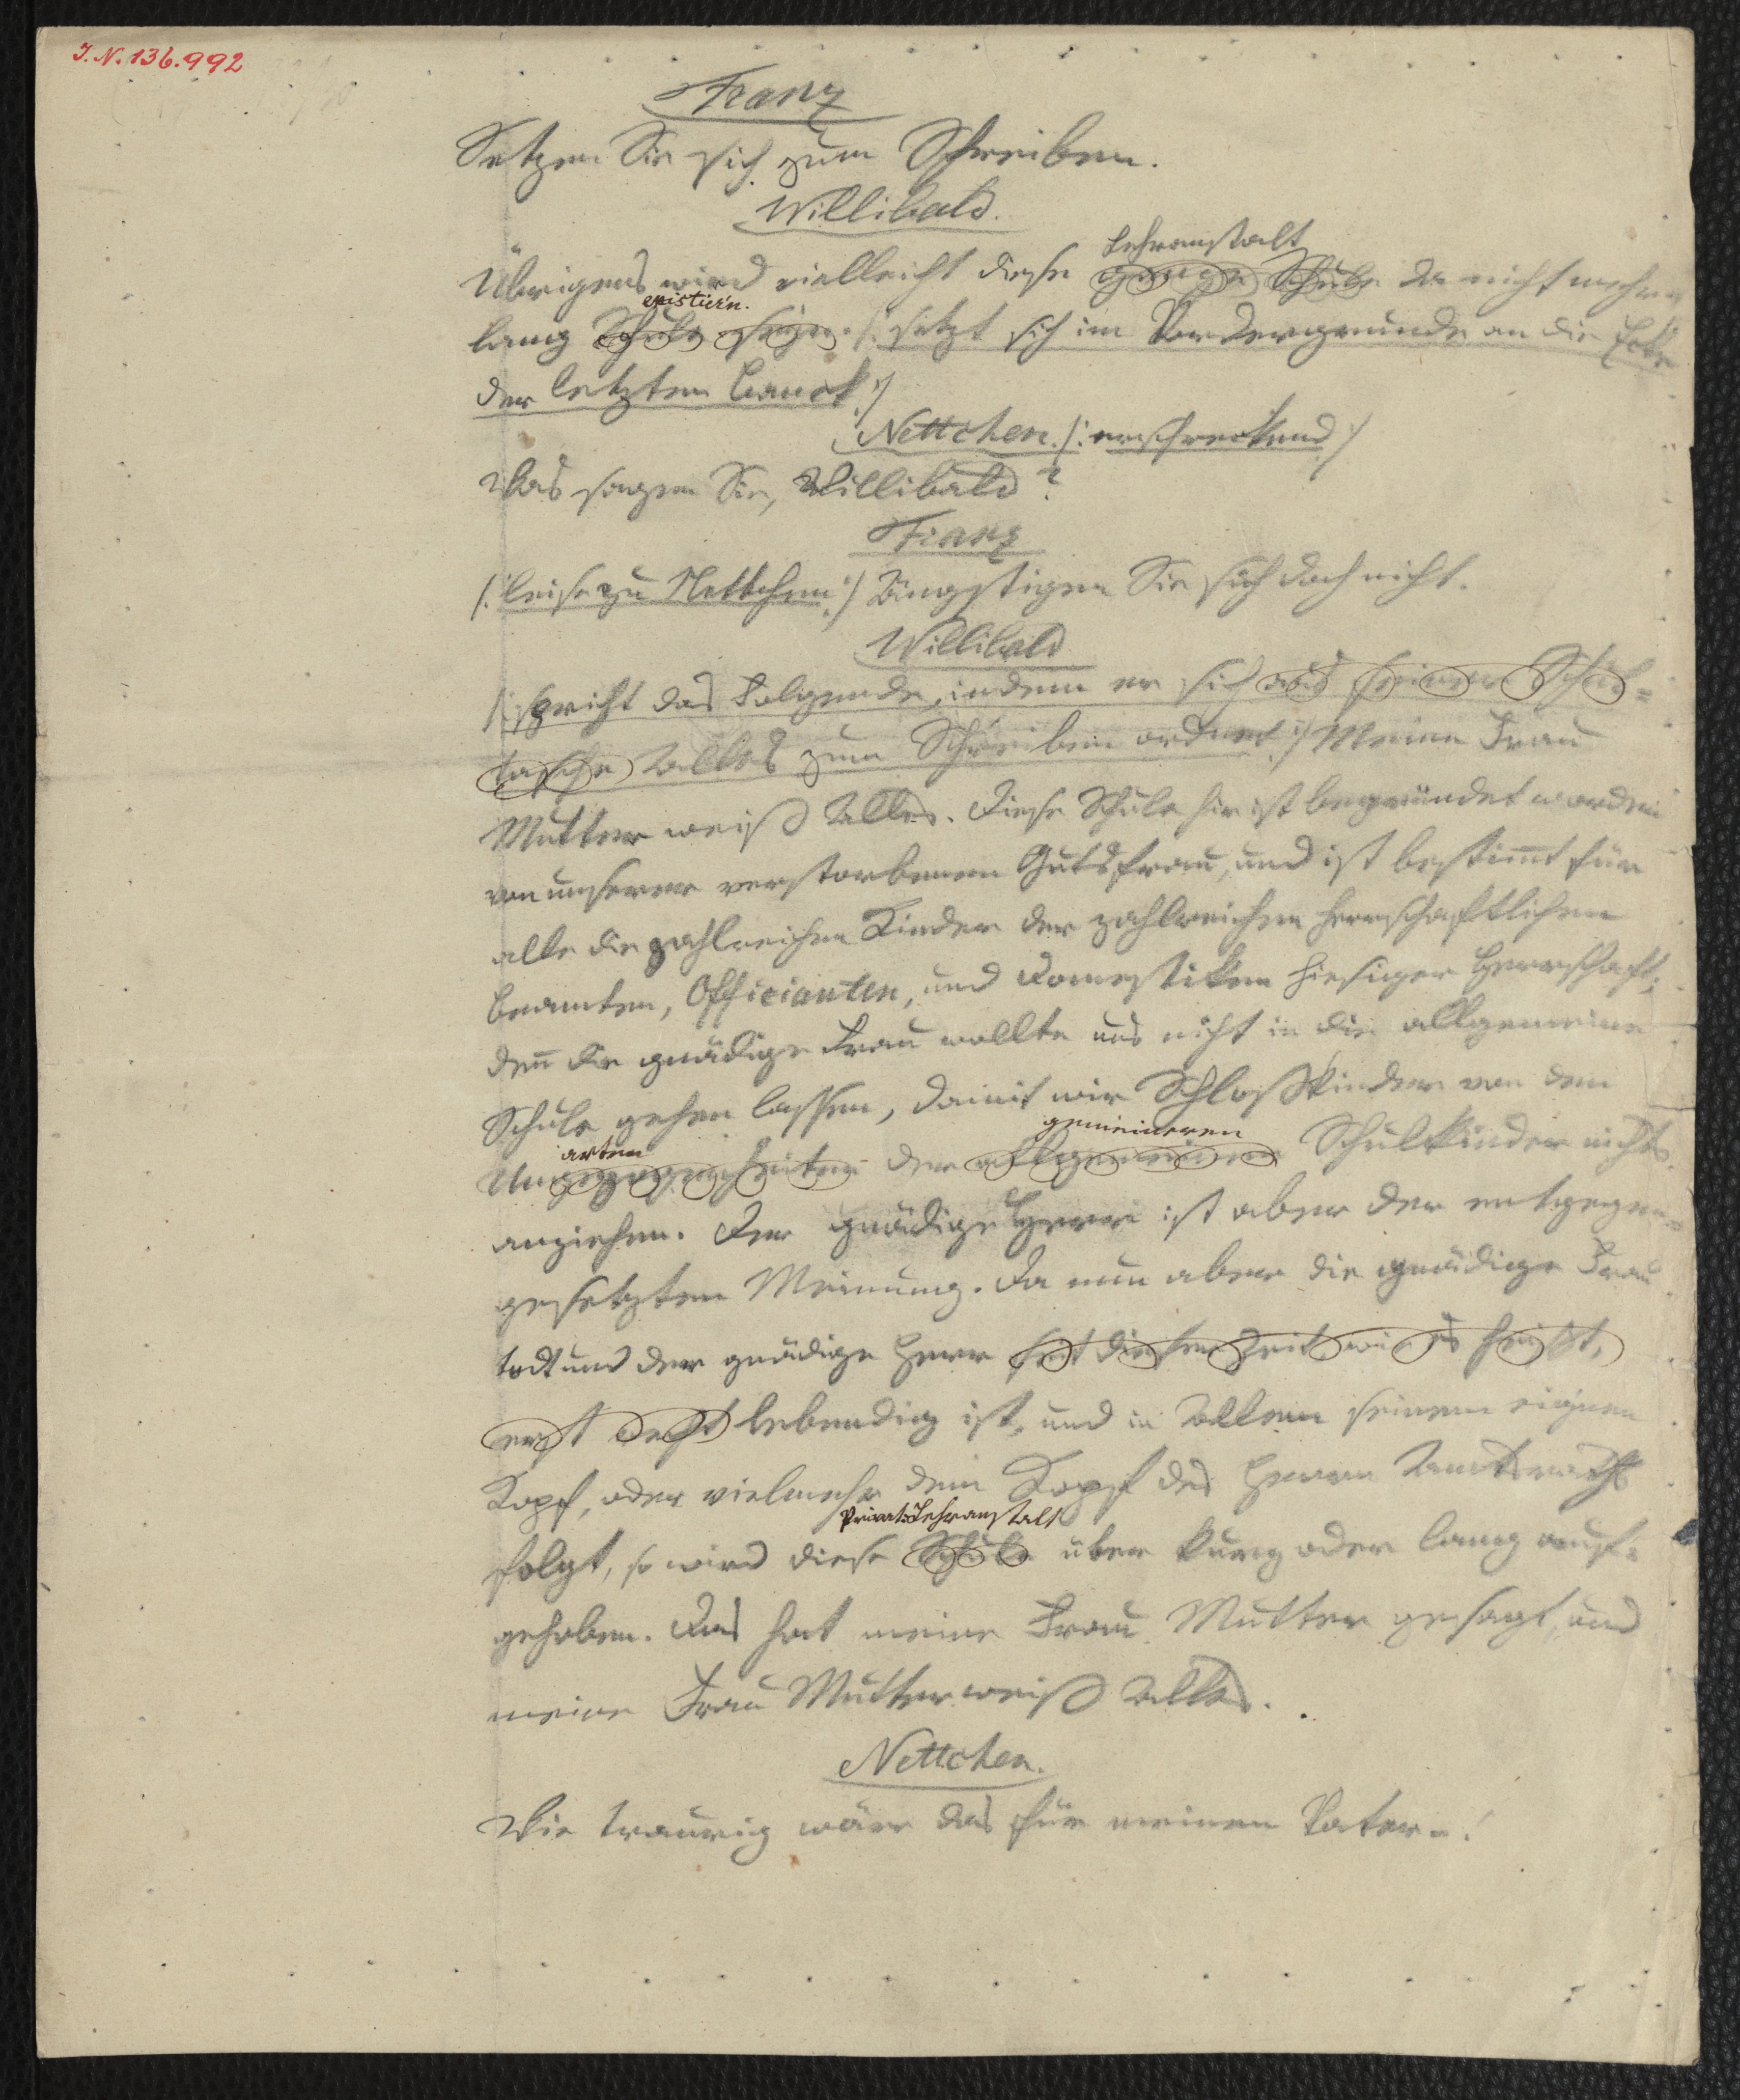 I. N. 136.992
Franz
Setzen Sie sich zum Schreiben.
Willibald.
Lehranstalt
Übrigens wird vielleicht diese ganze Schule da nicht mehr
existir'n.
lang Schule seyn. /: setzt sich im Vordergrunde an die Ecke
der letzten Bank :/
Nettchen. /: erschreckend :/
Was sagen Sie, Willibald?
Franz
/: leise zu Nettchen :/ Ängstigen Sie sich doch nicht.
Willibald
/: spricht das Folgende, indem er sich aus seiner Schul=
tasche Alles zum Schreiben ordnet :/ Meine Frau
Mutter weiß Alles. Diese Schule hier ist begründet worden
von unserer verstorbenen Gutsfrau, und ist bestimt für
alle die zahlreichen Kinder der zahlreichen herrschaftlichen
Beamten, Officianten, und Domestiken hiesiger Herrschaft;
den̄ die gnädige Frau wollte uns nicht in die allgemeine
Schule gehen lassen, damit wir Schloßkinder von den
arten gemeineren
Ungezogenheiten der allgemeinen Schulkinder nichts
anziehen. Der gnädige Herr ist aber der entgegen=
gesetzten Meinung. Da nun aber die gnädige Frau
todt und der gnädige Herr seit dieser Zeit wie es heißt,
erst recht lebendig ist, und in Allem seinem eignen
Kopf, oder vielmehr dem Kopf des Herrn Amtsraths
Privat=Lehranstalt
folgt, so wird diese Schule über kurz oder lang auf=
gehoben. Das hat meine Frau Mutter gesagt, und
meine Frau Mutter weiß Alles.
Nettchen.
Wie traurig wäre das für meinen Vater –!